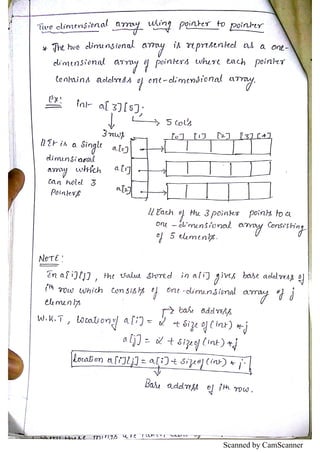 Two dimensional array using pointer to pointer
* The two dimensional array is represented as a one-
dimensional array of pointers where each pointer
contains address of one-dimensional array.
Ex: int a[3][5];
5 col's
3 rows
[0] [1] [2] [3] [4]
// It is a single
dimensional
array which
can hold 3
Pointers
a[0]
a[1]
a[2]
// Each of the 3 pointer points to a
one-dimensional array consisting
of 5 elements.
NOTE:
In a[i][j], the value stored in a[i] gives base address of
ith row which consists of one-dimensional array of j
elements
base address
W.K.T, location of a[i] = α + size of (int) * j
a[j] = α + size of (int) * j
Location a[i][j] = a[i] + size of (int) * j.
Base address of ith row.
Scanned by CamScanner